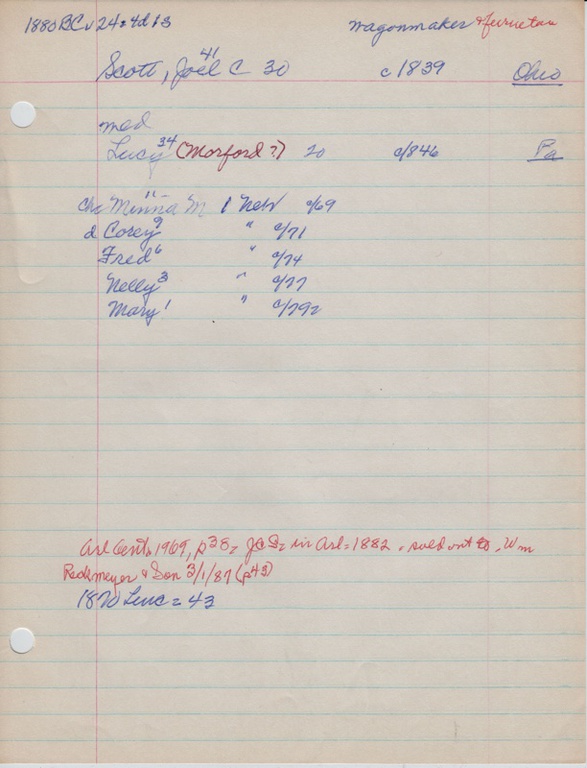 1880 BC v 24=4d 13 wagonmaker & furniture
Scott, Joel C 41 30 c 1839 Ohio
med
Lucy 34 (Morford?) 20 c/846 Pa
chx Minna M 11 1 Neb c/69
d Corey 9 " c/71
Fred 6 " c/74
Nelly 3 " c/77
Mary 1 " c/79
Arl Cent. 1969, p38= JCS= in Arl=1882, sold out to Wm
Reckmeyer & Son 3/1/87 (p43)
1870 = 43